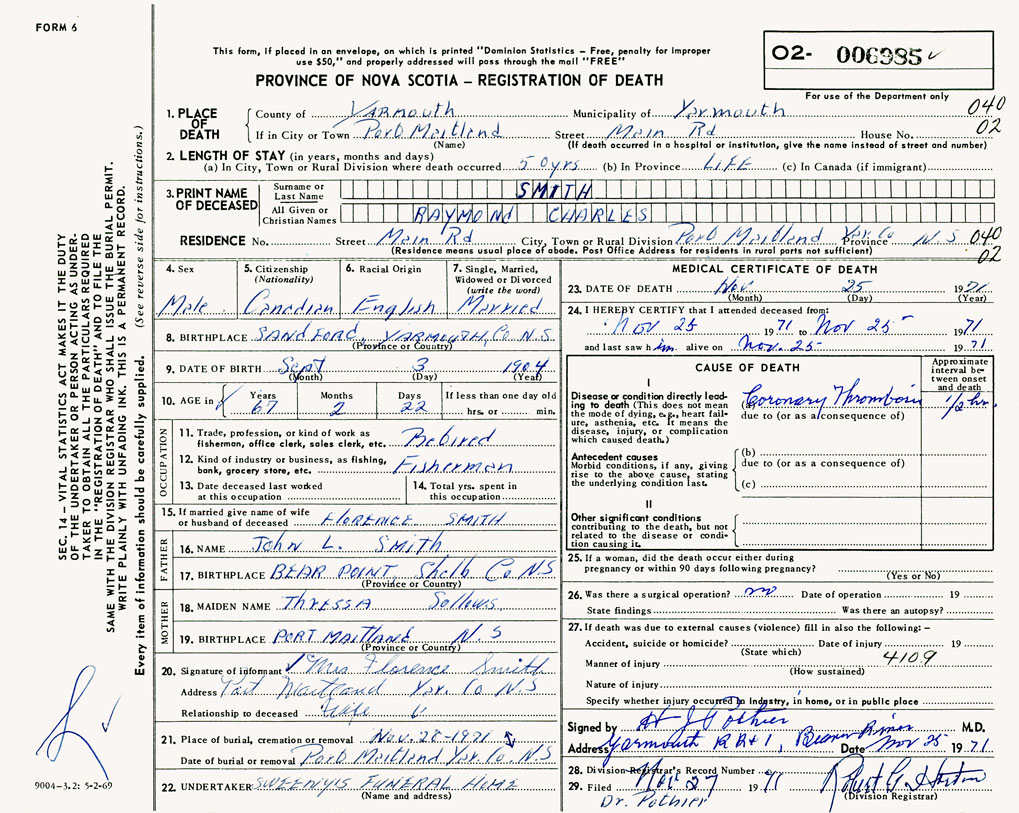 FORM 6
This form, if placed in an envelope, on which is printed "Dominion Statistics – Free, penalty for improper
use $50," and properly addressed will pass through the mail "FREE"
PROVINCE OF NOVA SCOTIA – REGISTRATION OF DEATH
O2- 006985 ✓
For use of the Department only
040
02
1. PLACE OF DEATH
County of YARMOUTH Municipality of Yarmouth
If in City or Town Port Maitland Street Main Rd House No.
(Name) (If death occurred in a hospital or institution, give the name instead of street and number)
2. LENGTH OF STAY (in years, months and days)
(a) In City, Town or Rural Division where death occurred 50 yrs (b) In Province LIFE (c) In Canada (if immigrant)
3. PRINT NAME OF DECEASED
Surname or Last Name SMITH
All Given or Christian Names RAYMOND CHARLES
RESIDENCE No. Street Main Rd City, Town or Rural Division Port Maitland Yar. Co Province N.S 040
(Residence means usual place of abode. Post Office Address for residents in rural parts not sufficient) 02
4. Sex Male
5. Citizenship (Nationality) Canadian
6. Racial Origin English
7. Single, Married, Widowed or Divorced (write the word) Married
8. BIRTHPLACE SANDFORD, YARMOUTH, Co N.S
(Province or Country)
9. DATE OF BIRTH Sept 3 1904
(Month) (Day) (Year)
10. AGE in ✓ Years 67 Months 2 Days 22 If less than one day old hrs. or min.
OCCUPATION
11. Trade, profession, or kind of work as fisherman, office clerk, sales clerk, etc. Retired
12. Kind of industry or business, as fishing, bank, grocery store, etc. Fisherman
13. Date deceased last worked at this occupation
14. Total yrs. spent in this occupation
15. If married give name of wife or husband of deceased FLORENCE SMITH
FATHER
16. NAME JOHN L. SMITH
17. BIRTHPLACE BEAR POINT, Shelb Co N.S
(Province or Country)
MOTHER
18. MAIDEN NAME THRESSA Sollows
19. BIRTHPLACE PORT MAITLAND N.S
(Province or Country)
20. Signature of informant ✓ Mrs Florence Smith
Address Port Maitland Yar. Co N.S
Relationship to deceased Wife
21. Place of burial, cremation or removal Nov. 28-1971
Date of burial or removal Port Maitland Yar. Co. N.S
22. UNDERTAKER SWEENYS FUNERAL HOME
(Name and address)
MEDICAL CERTIFICATE OF DEATH
23. DATE OF DEATH Nov. 25 1971
(Month) (Day) (Year)
24. I HEREBY CERTIFY that I attended deceased from:
Nov 25 1971 to Nov 25 1971
and last saw him alive on Nov. 25 1971
CAUSE OF DEATH
Approximate interval between onset and death
I
Disease or condition directly leading to death (This does not mean the mode of dying, e.g., heart failure, asthenia, etc. It means the disease, injury, or complication which caused death.)
(a) Coronary Thrombosis 1/2 hr.
due to (or as a consequence of)
Antecedent causes
Morbid conditions, if any, giving rise to the above cause, stating the underlying condition last.
(b)
due to (or as a consequence of)
(c)
II
Other significant conditions contributing to the death, but not related to the disease or condition causing it.
25. If a woman, did the death occur either during
pregnancy or within 90 days following pregnancy?
(Yes or No)
26. Was there a surgical operation? no Date of operation 19
State findings Was there an autopsy?
27. If death was due to external causes (violence) fill in also the following: –
Accident, suicide or homicide? Date of injury 19
(State which) 4109
Manner of injury
(How sustained)
Nature of injury
Specify whether injury occurred in industry, in home, or in public place
Signed by H J Pothier M.D.
Address Yarmouth RR#1, Beaver River Date Nov 25 1971
28. Division Registrar's Record Number
29. Filed Nov 27 1971
(Division Registrar)
Dr. Pothier
SEC. 14 – VITAL STATISTICS ACT MAKES IT THE DUTY
OF THE UNDERTAKER OR PERSON ACTING AS UNDER-
TAKER TO OBTAIN ALL THE PARTICULARS REQUIRED
IN THE "REGISTRATION OF DEATH" AND TO FILE THE
SAME WITH THE DIVISION REGISTRAR WHO SHALL ISSUE THE BURIAL PERMIT.
WRITE PLAINLY WITH UNFADING INK. THIS IS A PERMANENT RECORD.
Every item of information should be carefully supplied. (See reverse side for instructions.)
9004-3.2: 5-2-69